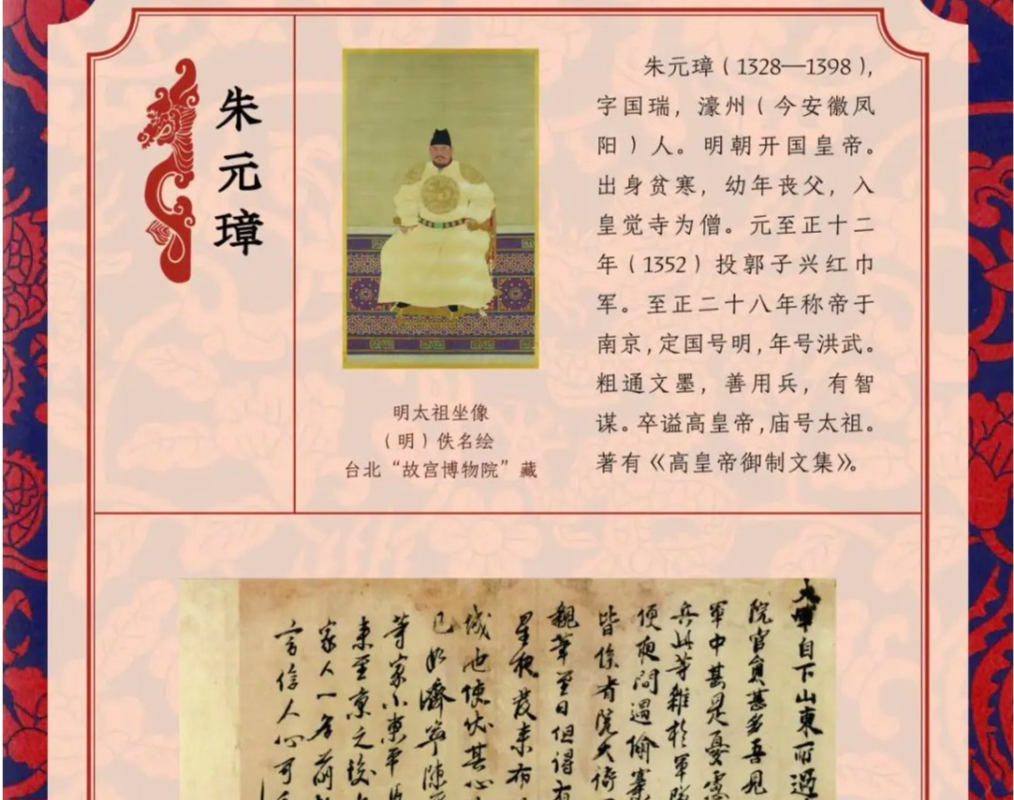 朱元璋
明太祖坐像
（明）佚名绘
台北“故宫博物院”藏
朱元璋（1328—1398），
字国瑞，濠州（今安徽凤
阳）人。明朝开国皇帝。
出身贫寒，幼年丧父，入
皇觉寺为僧。元至正十二
年（1352）投郭子兴红巾
军。至正二十八年称帝于
南京，定国号明，年号洪武。
粗通文墨，善用兵，有智
谋。卒谥高皇帝，庙号太祖。
著有《高皇帝御制文集》。
大軍自下山東所過
院官員甚多吾見
軍中甚是憂慮
兵此等雜於軍隊
便夜間遇偷寨
皆係省院大衙
親筆至日但得有
星夜發來布
城池使伏其心
已如濟寧陳平
等家小東平馬
來至京之後安
家人一名前
言信人心可